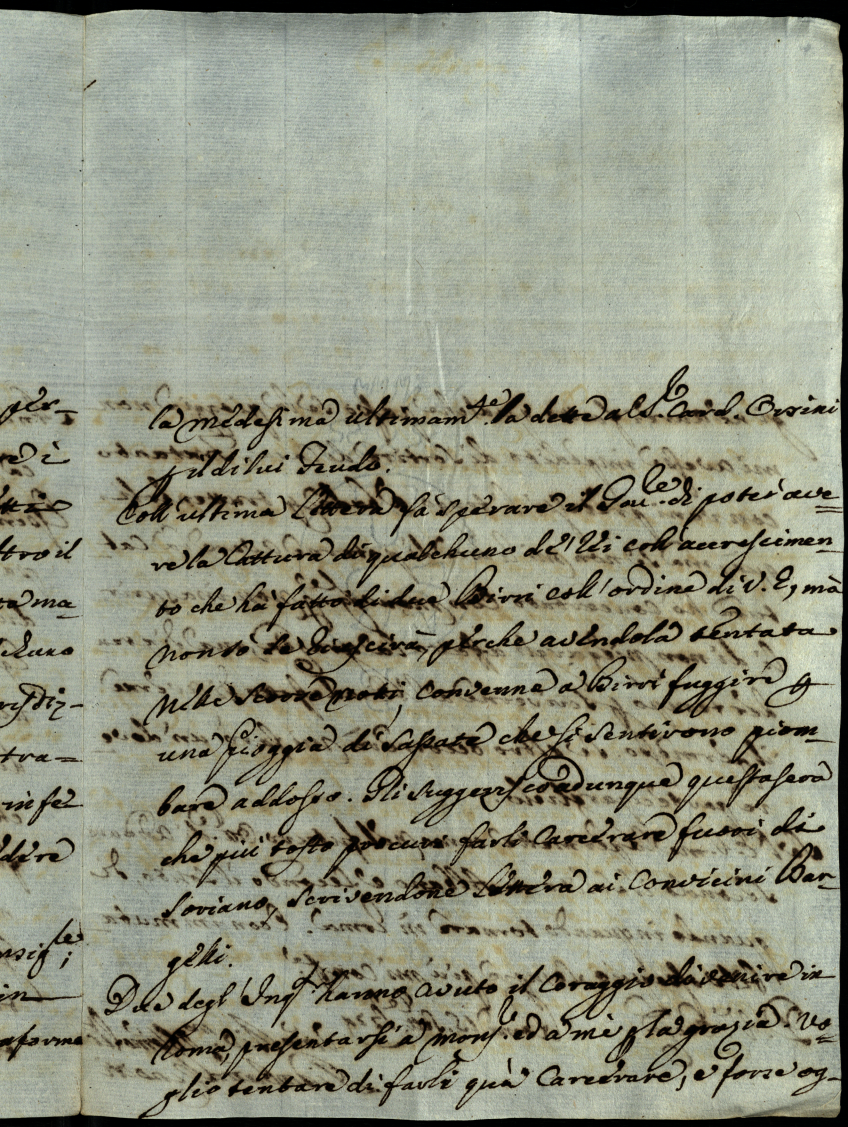 per=
ltro il
ta ma=
tra=
in
la medesima ultimam.te la dette al S.r Card. Orsini
p il di lui feudo.
Coll'ultima lettera fà sperare il Gov.re di poter ave=
re la Cattura di qualchuno de' Rei coll'accrescimen=
to che hà fatto di due Birri coll'ordine di V. E., mà
non sò se riuscirà, perche avendola tentata
nelle scorse notti, convenne a Birri fuggire p
una pioggia di sassate che si sentirono piom=
bare addosso. Gli suggerisco adunque questa sera
che più tosto procuri farli Carcerare fuori di
Soriano, scrivendone lettera ai Convicini Bar=
gelli.
Due degl'Inq.ti hanno avuto il coraggio di venire in
Roma, presentarsi a Mons.r ed a me p la grazia. Vo=
glio tentare di farli quà Carcerare, e forse og=